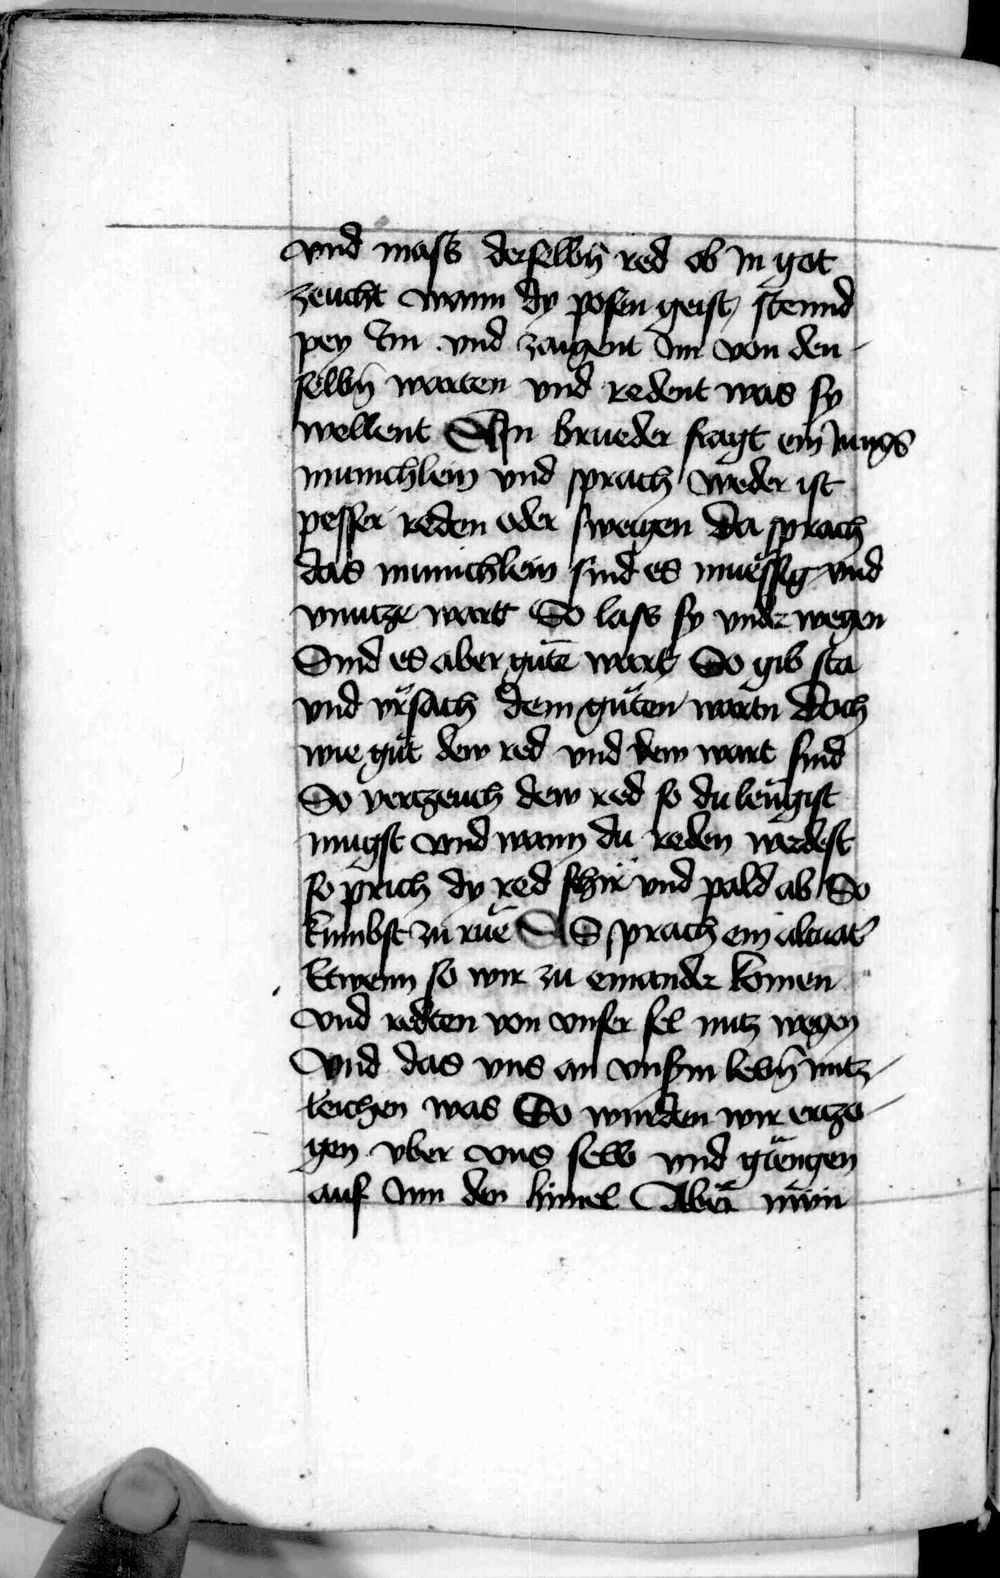 vnd mass derselbñ red ob In got
zeucht wann dy posen geist stennd
pey Im vnd zaigent Im von den
selbñ warten vnd redent was sy
wellent Ain brueder fragt ein Jungs
munichlein vnd sprach weder ist
pesser reden oder sweigen Da sprach
das munichlein sind es muessig vnd
vnnutze wart So lass sy vnder wegen
Sind es aber gute wart So gib sta
vnd vrsach dem guten wartn Doch
wie gut dew red vnd dew wart sind
So vertzeuch dew red so du lengist
mugst vnd wann du reden werdest
so prich dy red schir vnd pald ab So
kumbst zu rue Es sprach ein altuat̾
Etwenn so wir zu einander komen
vnd redten von vnser sel nutz wegen
Vnd das vns an vnserm lebñ nutz
leichen was So wurden wir ertzo
gen vber vns selb vnd giengen
auf Inn den himel Aber nwn